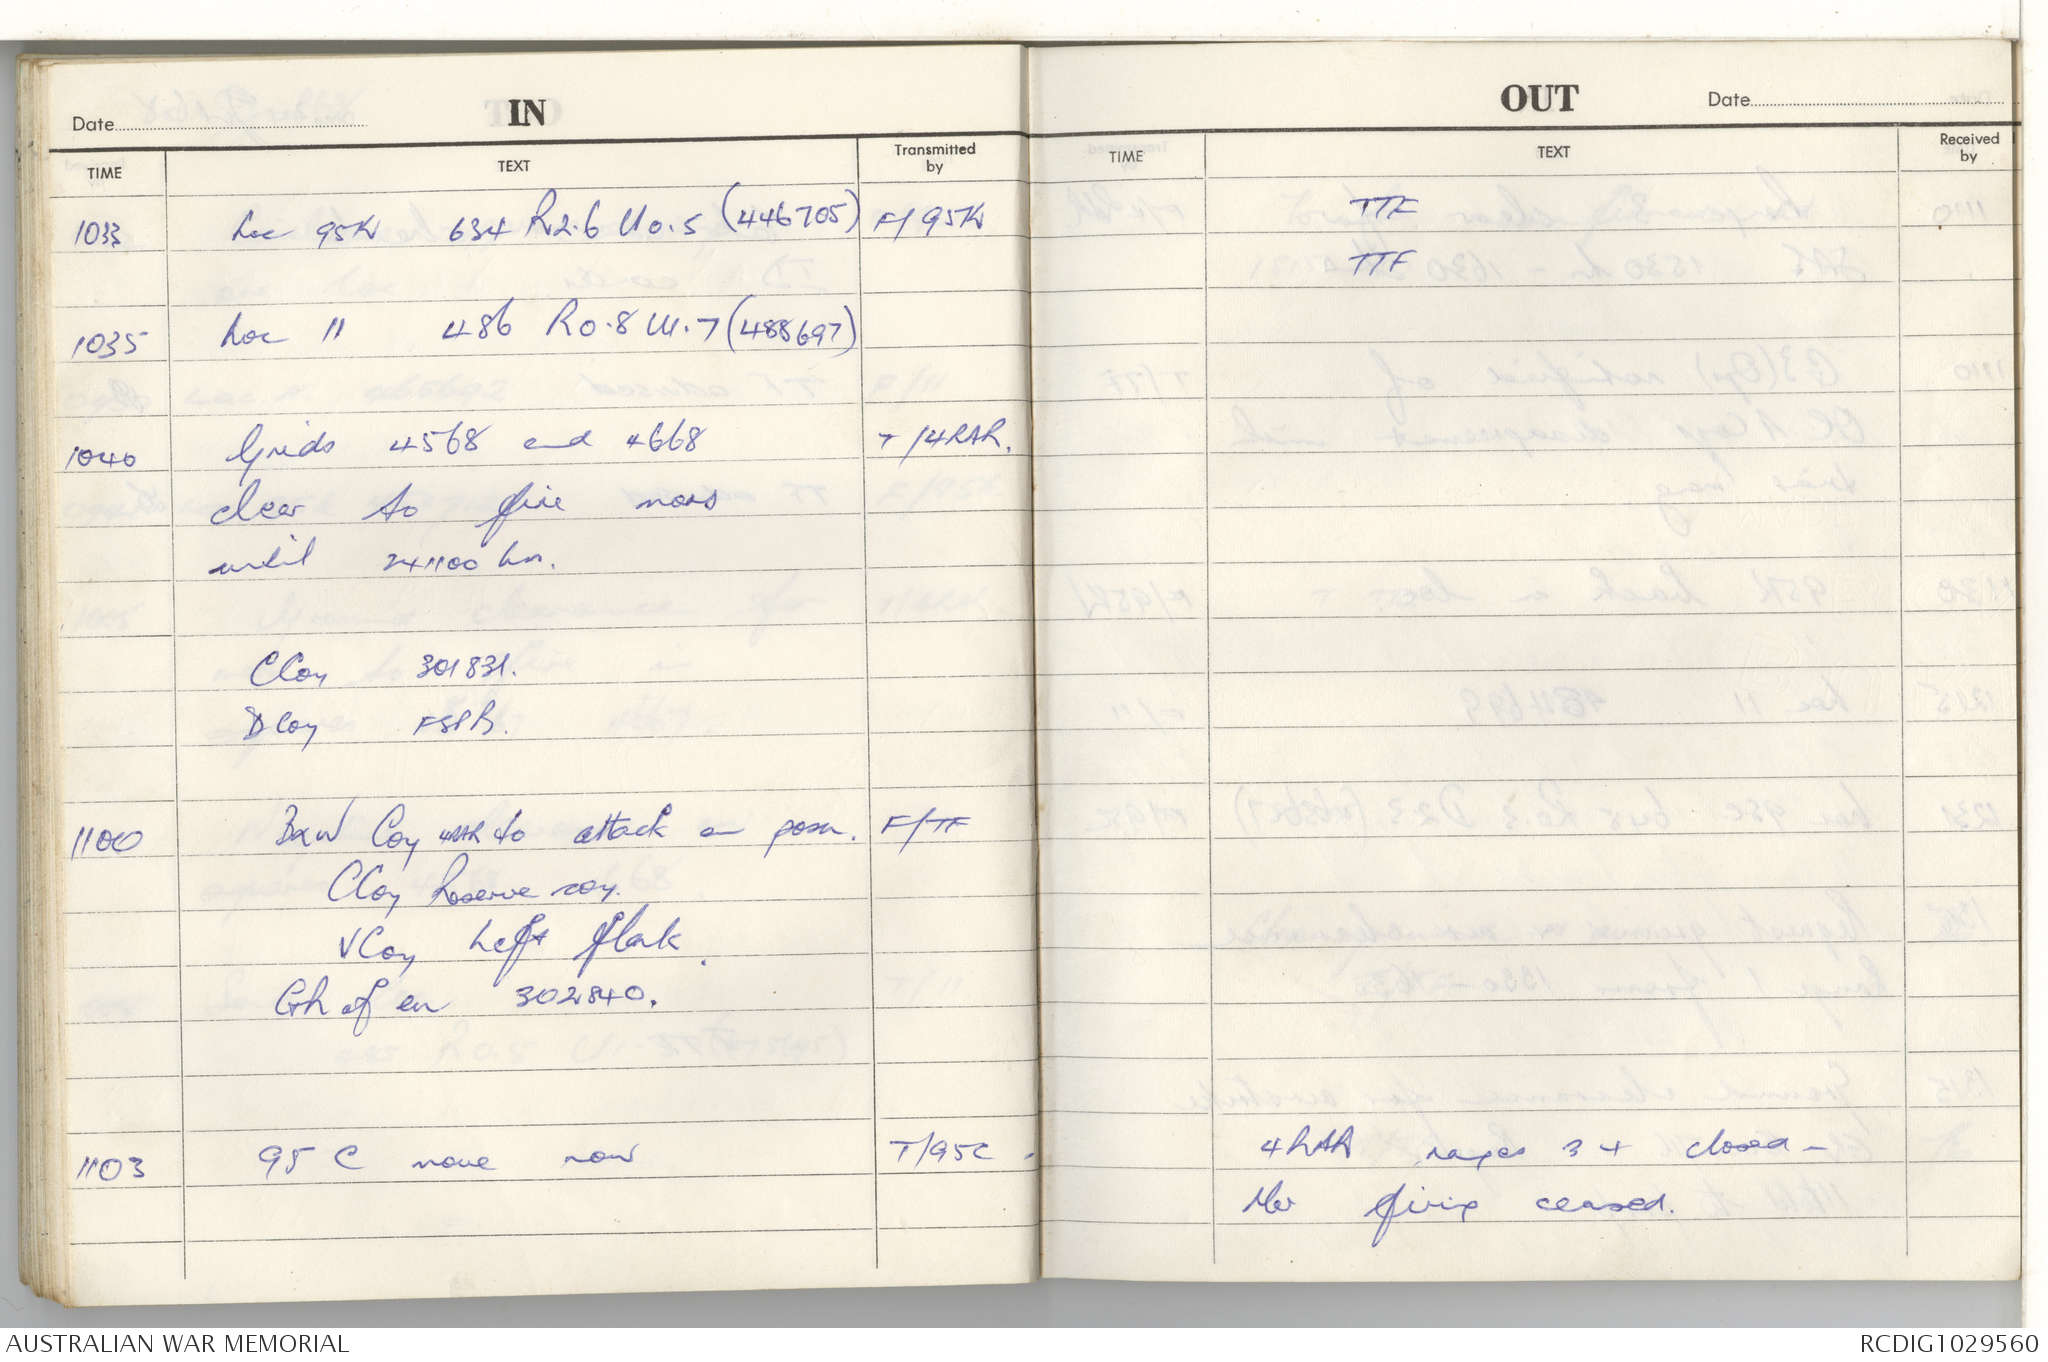 IN
Date
TIME TEXT Transmitted by
1033 Loc 95K 634 R2.6 U0.5 (446705) F/95K
1035 Loc 11 486 R0.8 U1.7 (488697)
1040 Grids 4568 and 4668 T/4RAR.
clear to fire mors
until 241100 hrs.
C Coy 301831.
D Coy FSPB.
1100 B & W Coy 4RAR to attack en posn. F/TF
C Coy Reserve coy.
V Coy Left flank.
of en 302840.
1103 95C move now T/95C
OUT
Date
TIME TEXT Received by
TTF
TTF
4RAR ranges 3 4 closed -
Mor firing ceased.
AUSTRALIAN WAR MEMORIAL
RCDIG1029560